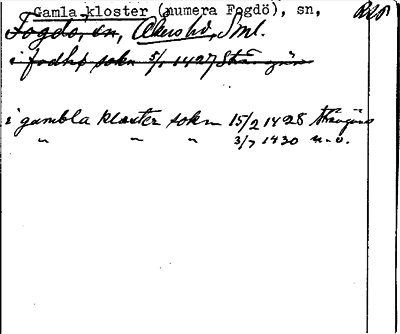 Gamla kloster (numera Fogdö), sn,
Fogdö, sn, Åkersbo, Sml.
i fodhø sokn 5/1 1427 Strängnäs
i gambla kloster sokn 15/2 1428 Strängnäs
" " " 3/7 1430 m.v.